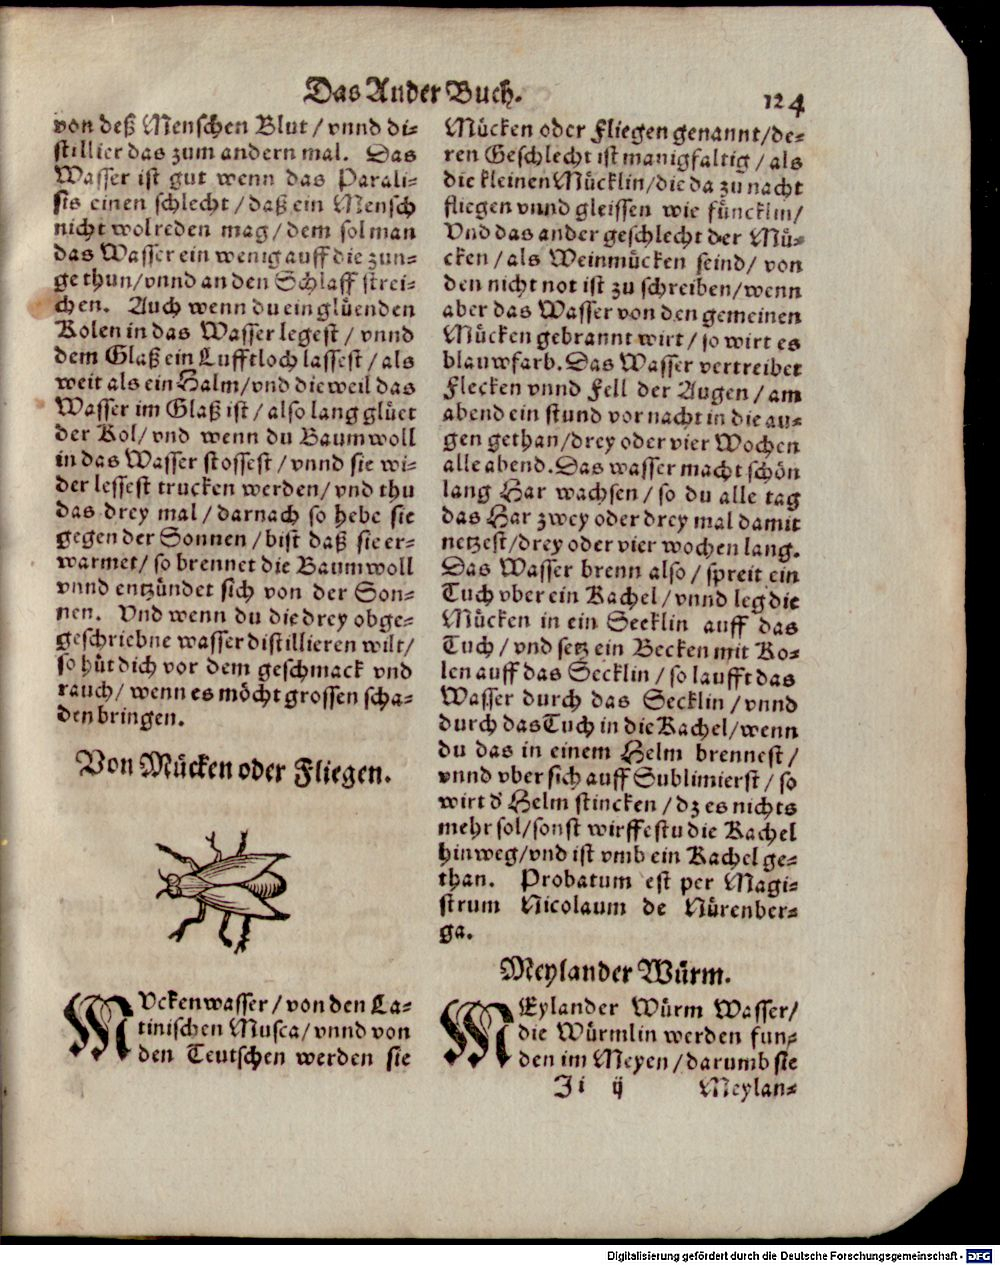 Das Ander Buch.
124
von deß Menschen Blut / vnnd di⸗
stillier das zum andern mal. Das
Wasser ist gut wenn das Parali⸗
sis einen schlecht / daß ein Mensch
nicht wol reden mag / dem sol man
das Wasser ein wenig auff die zun⸗
ge thun / vnnd an den Schlaff strei⸗
chen. Auch wenn du ein glüenden
Kolen in das Wasser legest / vnnd
dem Glaß ein Lufftloch lassest / als
weit als ein Halm / vnd die weil das
Wasser im Glaß ist / also lang glüet
der Kol / vnd wenn du Baumwoll
in das Wasser stossest / vnnd sie wi⸗
der lessest trucken werden / vnd thu
das drey mal / darnach so hebe sie
gegen der Sonnen / bist daß sie er⸗
warmet / so brennet die Baumwoll
vnnd entzündet sich von der Son⸗
nen. Vnd wenn du die drey obge⸗
geschriebne wasser distillieren wilt /
so hüt dich vor dem geschmack vnd
rauch / wenn es möcht grossen scha⸗
den bringen.
Von Mücken oder Fliegen.
MVckenwasser / von den La⸗
tinischen Musca / vnnd von
den Teutschen werden sie
Mücken oder Fliegen genannt / de⸗
ren Geschlecht ist manigfaltig / als
die kleinen Mücklin / die da zu nacht
fliegen vnnd gleissen wie füncklin /
Vnd das ander geschlecht der Mü⸗
cken / als Weinmücken seind / von
den nicht not ist zu schreiben / wenn
aber das Wasser von den gemeinen
Mücken gebrannt wirt / so wirt es
blauwfarb. Das Wasser vertreibet
Flecken vnnd Fell der Augen / am
abend ein stund vor nacht in die au⸗
gen gethan / drey oder vier Wochen
alle abend. Das wasser macht schön
lang Har wachsen / so du alle tag
das Har zwey oder drey mal damit
netzest / drey oder vier wochen lang.
Das Wasser brenn also / spreit ein
Tuch vber ein Kachel / vnnd leg die
Mücken in ein Secklin auff das
Tuch / vnd setz ein Becken mit Ko⸗
len auff das Secklin / so laufft das
Wasser durch das Secklin / vnnd
durch das Tuch in die Kachel / wenn
du das in einem Helm brennest /
vnnd vber sich auff Sublimierst / so
wirt d' Helm stincken / dz es nichts
mehr sol / sonst wirffestu die Kachel
hinweg / vnd ist vmb ein Kachel ge⸗
than. Probatum est per Magi⸗
strum Nicolaum de Nürenber⸗
ga.
Meylander Würm.
MEylander Würm Wasser /
die Würmlin werden fun⸗
den im Meyen / darumb sie
Ji ij
Meylan⸗
Digitalisierung gefördert durch die Deutsche Forschungsgemeinschaft - DFG